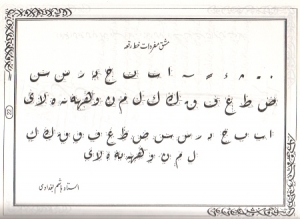 مشق مفردات خط رقعه
ا ب ج د ر س س
ص ط ع ف ق ك ك ل م ن و هـ ه ه لا ى
ا ب ب ج د ر س س ص ط ع ف ق ق ك ك
ل م ن و هـ ه ه لا ى
استاد هاشم بغدادى